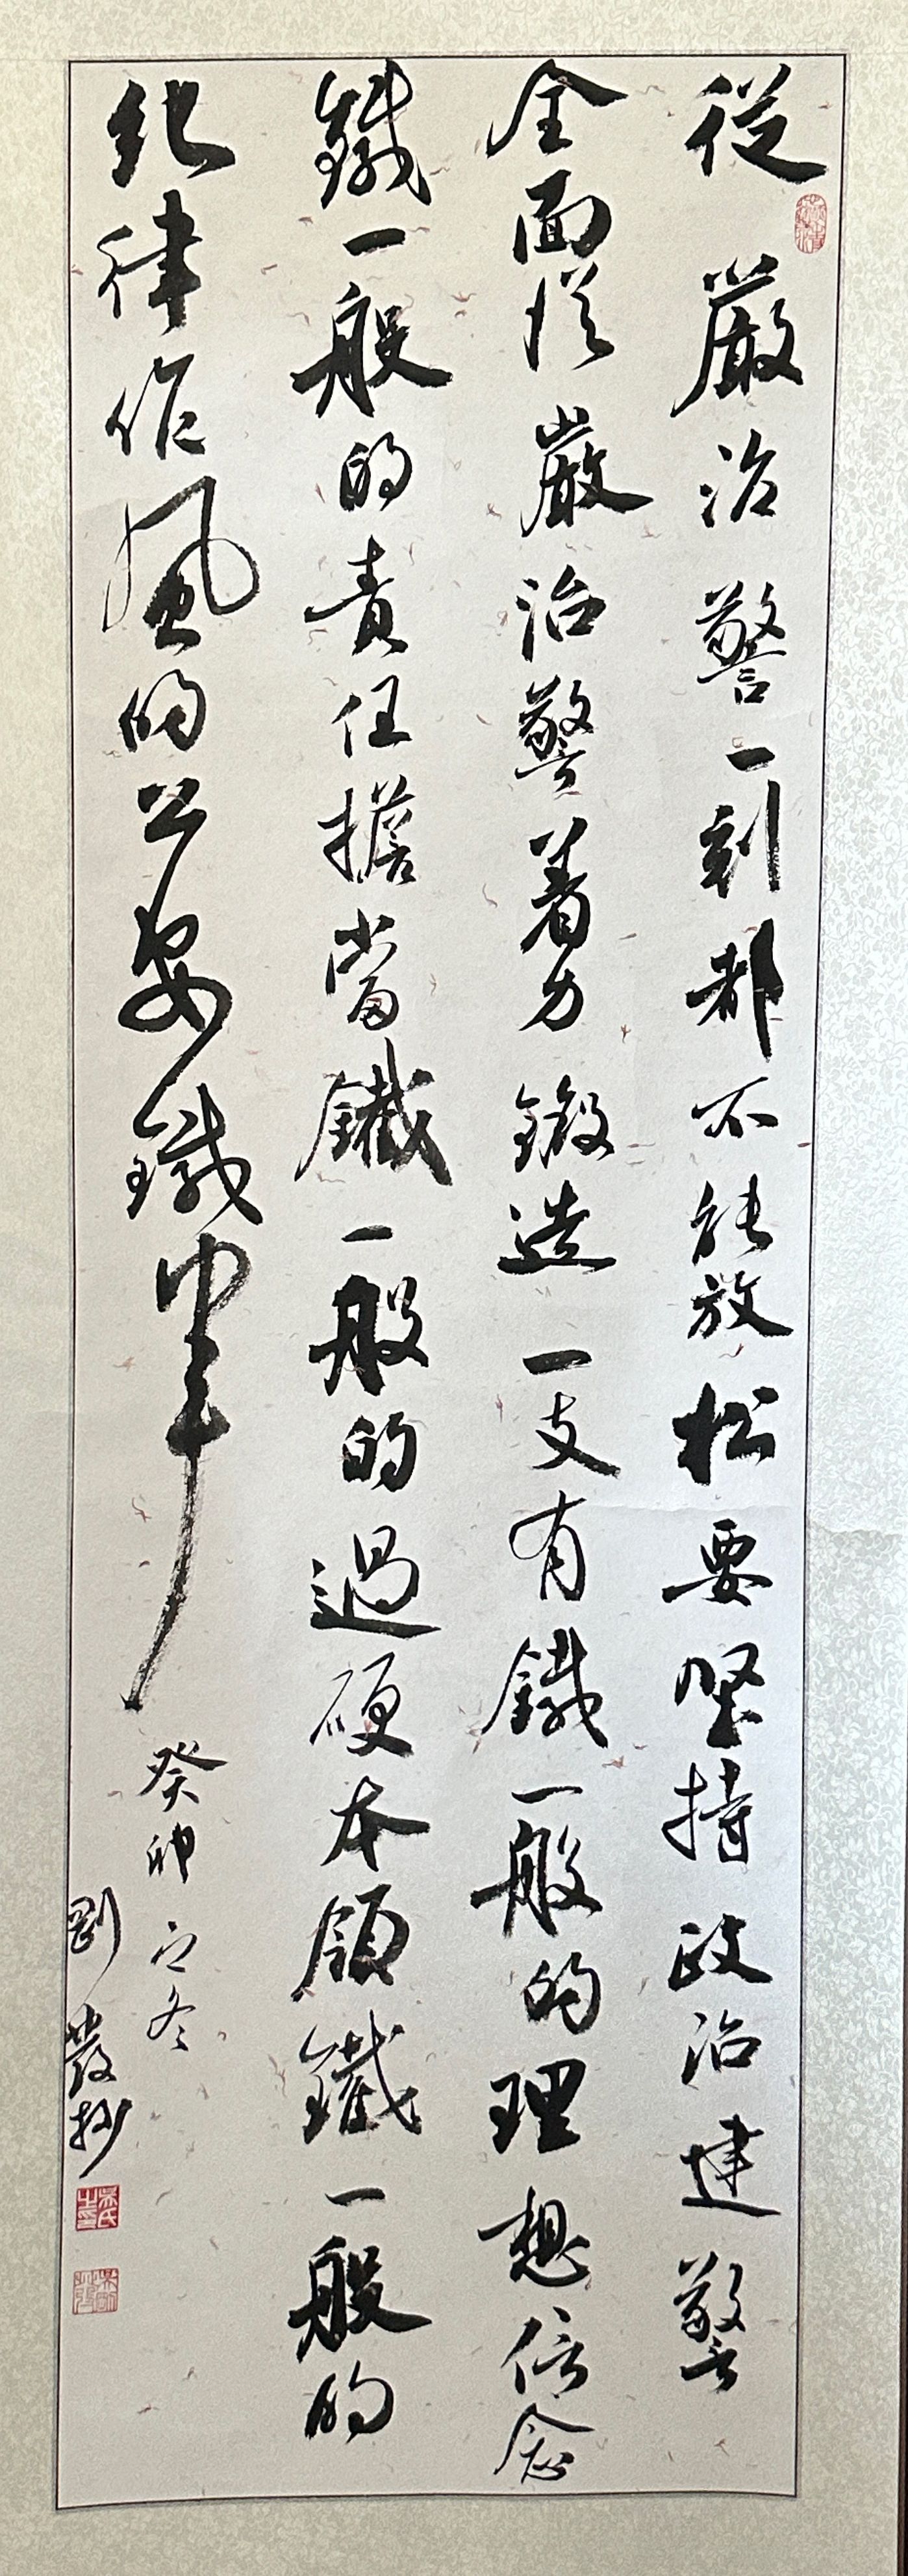 從嚴治警一刻都不能放松要堅持政治建警
全面從嚴治警着力鍛造一支有鐵一般的理想信念
鐵一般的責任擔當鐵一般的過硬本領鐵一般的
紀律作風的公安鐵軍
癸卯立冬
剛發抄